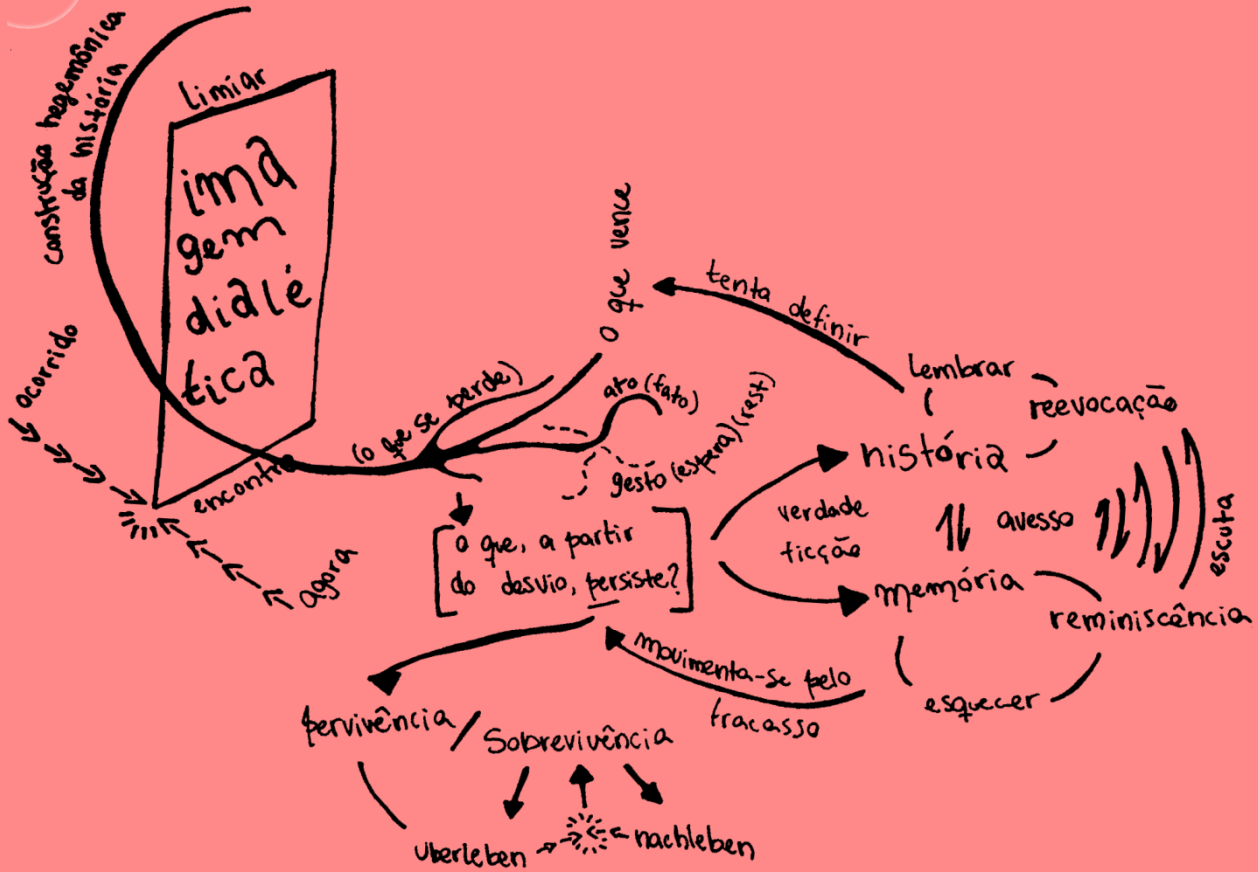 construção hegemônica
da história
limiar
imá
gem
dialé
tica
ocorrido
encontro
agora
(o que se perde)
o que vence
ato (fato)
gesto (espera) (rest)
tenta definir
lembrar
reevocação
história
verdade
ficção
avesso
escuta
memória
reminiscência
esquecer
[o que, a partir
do desvio, persiste?]
movimenta-se pelo
fracasso
pervivência / Sobrevivência
uberleben
nachleben